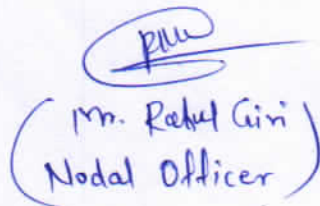 (Mr. Rahul Giri
Nodal Officer)